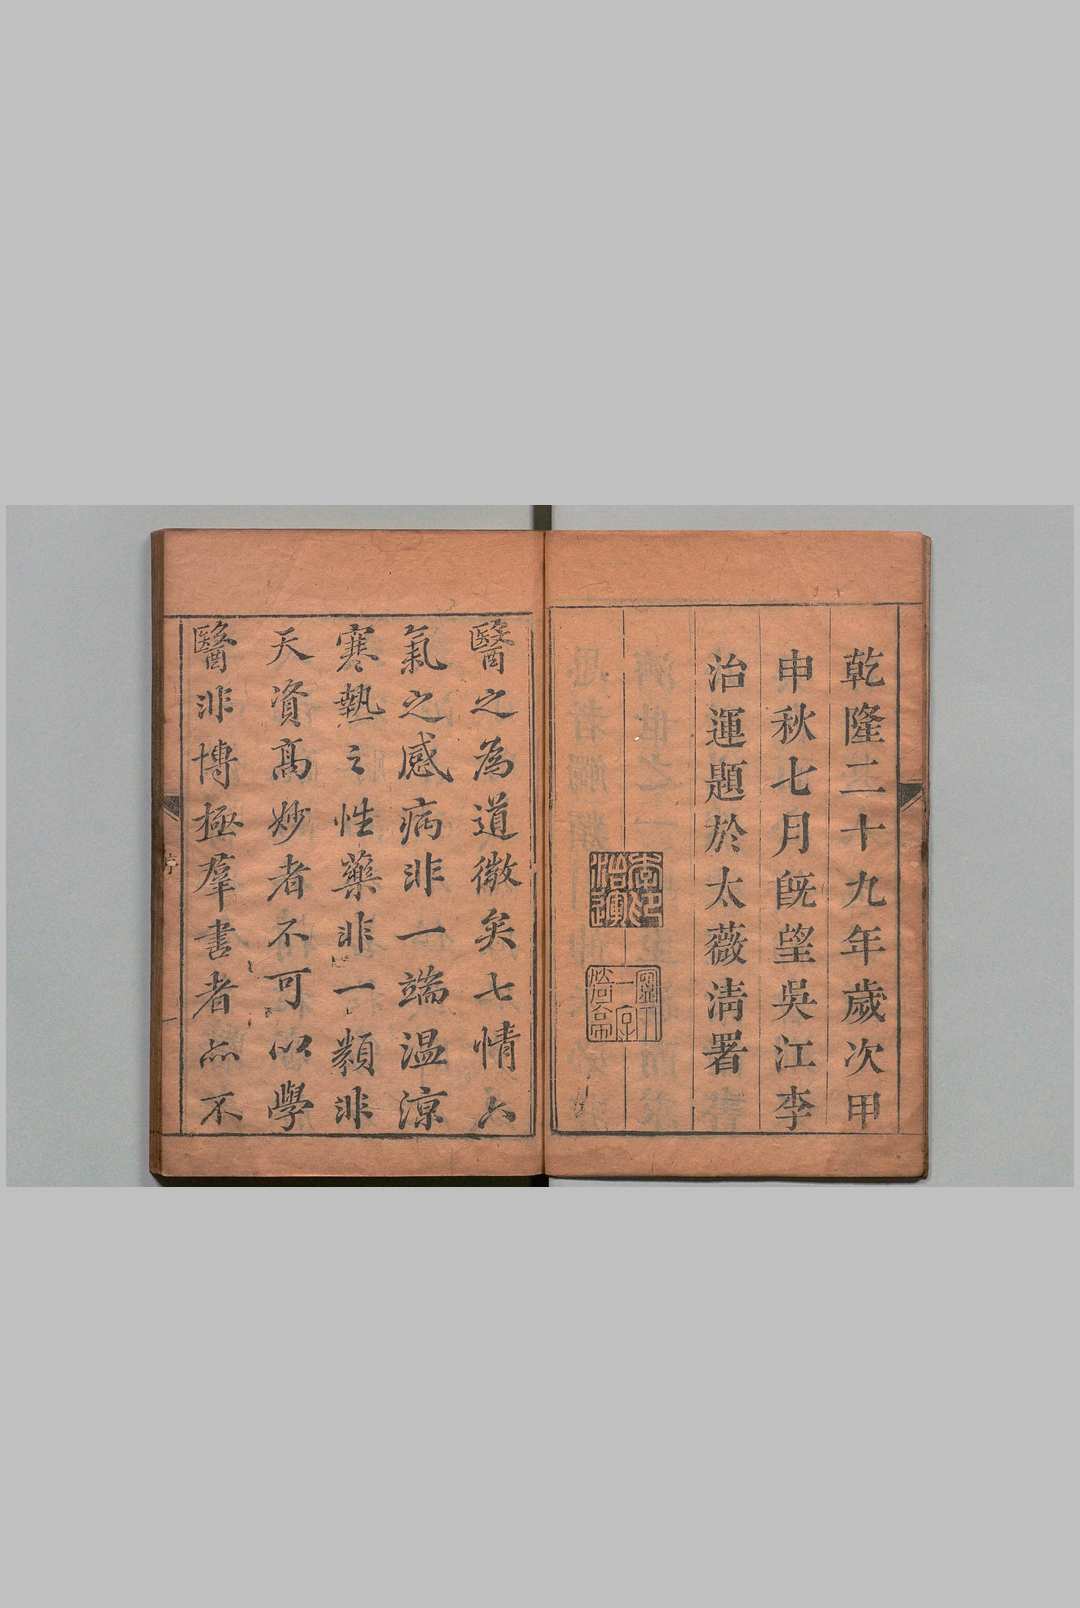 乾隆二十九年歲次甲
申秋七月既望吳江李
治運題於太薇清署
李印治運
醫之為道微矣七情六
氣之感病非一端温涼
寒熱之性藥非一類非
天資高妙者不可以學
醫非博極羣書者亦不
序
一